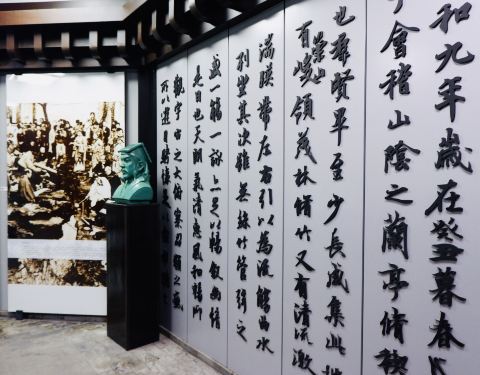 和九年歲在癸丑暮春
會稽山陰之蘭亭脩禊
也羣賢畢至少長咸集此地
有崇山峻領茂林脩竹又有清流激
湍暎帶左右引以為流觴曲水
列坐其次雖無絲竹管弦之
盛一觴一詠亦足以暢敘幽情
是日也天朗氣清惠風和暢仰
觀宇宙之大俯察品類之盛
所以遊目騁懷